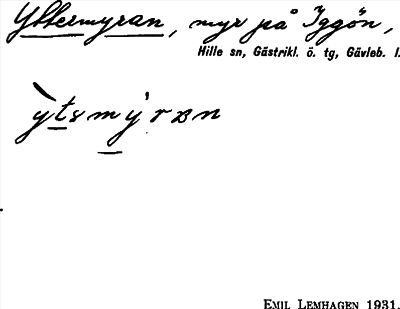 Yttermyran, myr på Iggön,
Hille sn, Gästrikl. ö. tg, Gävleb. l.
EMIL LEMHAGEN 1931.